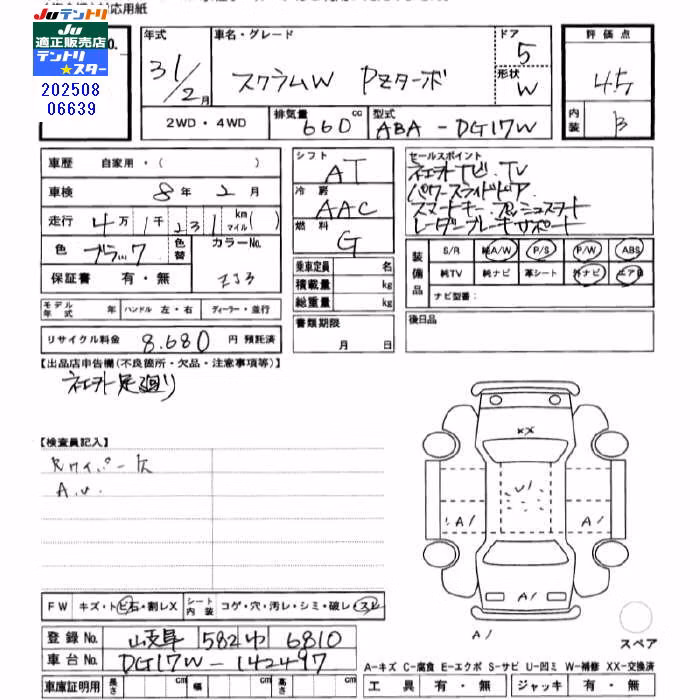 対応用紙
JUテントリ
適正販売店
テントリ
★スター
202508
06639
NO.
年式 31/2月
車名・グレード スクラムW PZターボ
ドア 5
形状 W
評価点 4.5
内装 B
2WD・4WD
排気量 660 cc
型式 ABA-DG17W
車歴 自家用・( )
車検 8年2月
走行 4万1千231 km マイル( )
色 ブラック
色替
カラーNo. ZJ3
保証書 有・無
シフト AT
冷房 AAC
燃料 G
乗車定員 名
積載量 kg
総重量 kg
書類期限 月 日
セールスポイント
社外ナビ.TV
パワースライドドア
スマートキー.プッシュスタート
レーダーブレーキサポート
装備品
S/R 純A/W P/S P/W ABS
純TV 純ナビ 革シート 外ナビ エアB
ナビ型番:
後日品
モデル年式 年 ハンドル 左・右 ディーラー・並行
リサイクル料金 8.680 円 預託済
【出品店申告欄(不良箇所・欠品・注意事項等)】
社外足廻り
【検査員記入】
Rワイパー欠
A.U.
XX
U1
A1
A1
A1
A1
FW キズ・トビ石・割レX
シート内装 コゲ・穴・汚レ・シミ・破レ・スレ
スペア
登録No. 岐阜 582 ゆ 6810
車台No. DG17W-142497
A-キズ C-腐食 E-エクボ S-サビ U-凹ミ W-補修 XX-交換済
車庫証明用 長さ cm 幅 cm 高さ cm
工具 有・無 ジャッキ 有・無